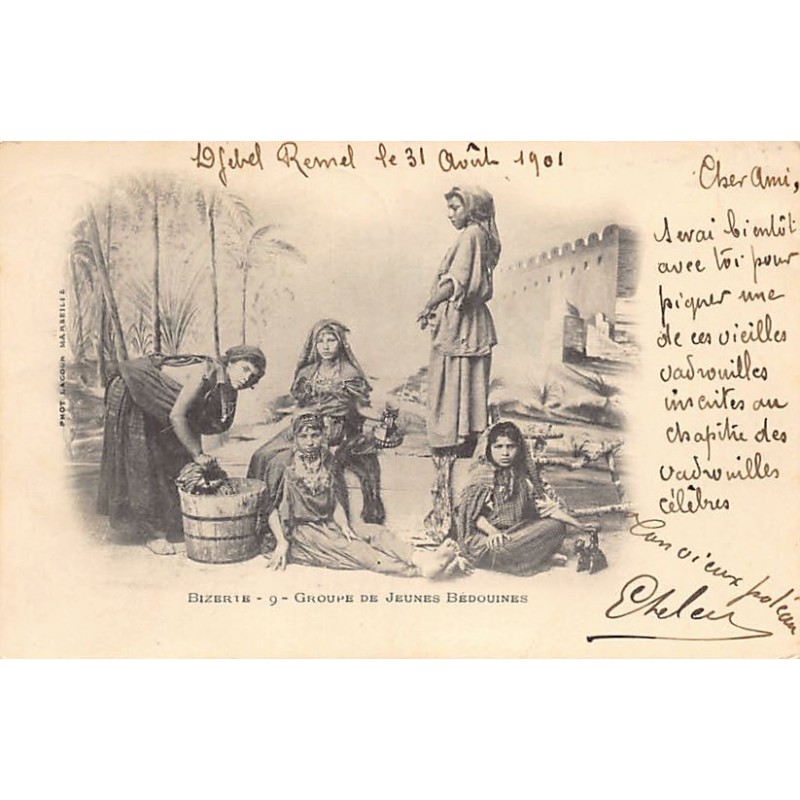 Djebel Remel le 31 Août 1901
Cher Ami,
Serai bientôt
avec toi pour
piquer une
de ces vieilles
vadrouilles
inscrites au
chapitre des
vadrouilles
célèbres
Ton vieux poteau
PHOT LACOUR MARSEILLE
BIZERTE - 9 - GROUPE DE JEUNES BÉDOUINES